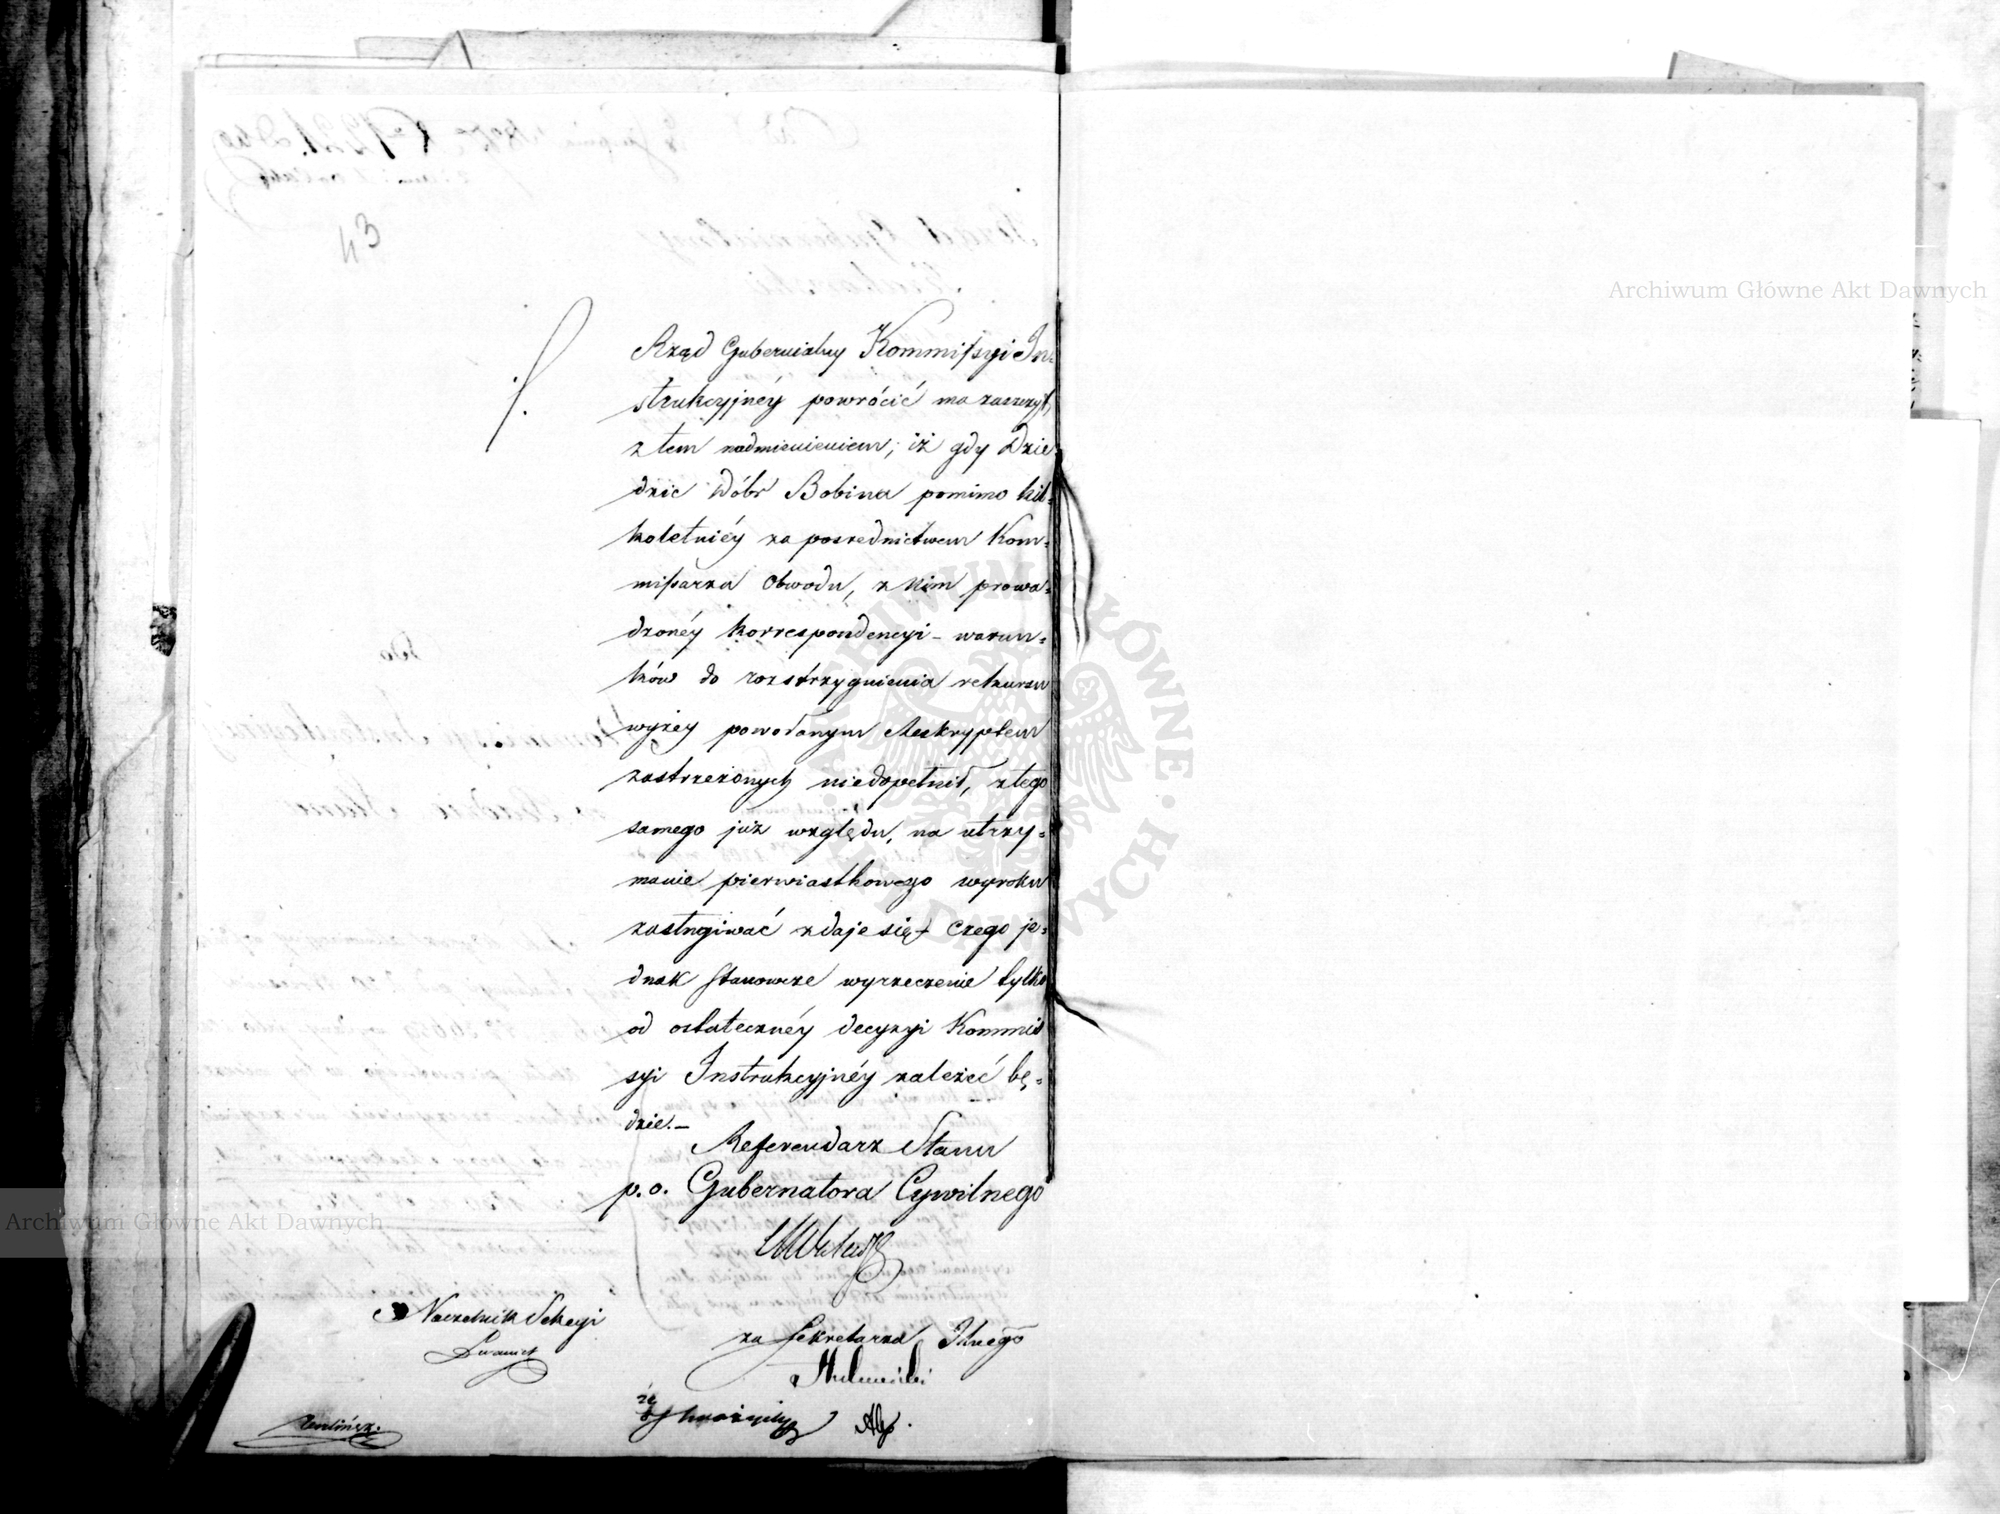 43
Rząd Gubernialny Kommissyi In=
strukcyjnéy powrócić ma zaszczyt,
z tem nadmienieniem, iż gdy Dzie=
dzic Dóbr Bobina pomimo kil=
koletniéy za pośrednictwem Kom=
missarza Obwodu, z nim prowa=
dzonéy korrespondencyi – warun=
ków do rozstrzygnienia rekursu
wyżey powołanym Reskryptem
zastrzeżonych niedopełnił, z tego
samego już względu, na utrzy=
manie pierwiastkowego wyroku
zasługiwać zdaje się – czego je=
dnak stanowcze wyrzeczenie tylko
od ostatecznéy decyzyi Kommis
syi Instrukcyjnéy zależeć bę=
dzie. –
Referendarz Stanu
p.o. Gubernatora Cywilnego
Naczelnik Sekcyi
za Sekretarza Jlnego
Archiwum Główne Akt Dawnych
Archiwum Główne Akt Dawnych
ARCHIWUM GŁÓWNE AKT DAWNYCH